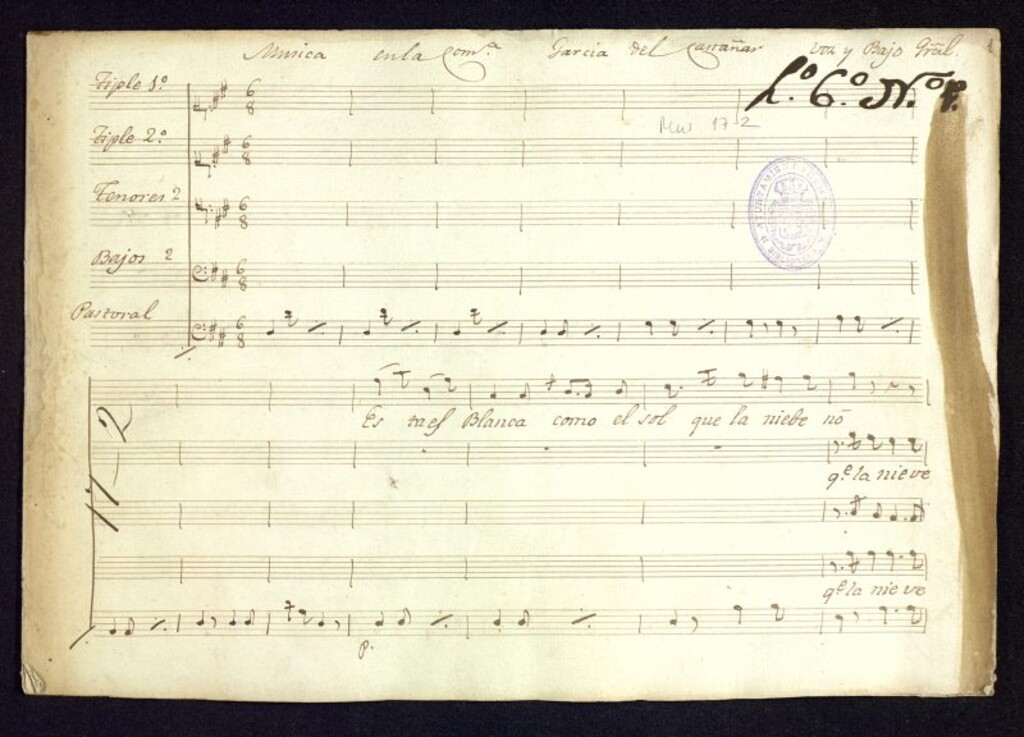 Musica enla Com.ª Garcia del Castañar Voz y Bajo Grãl.
L.º 6.º N.º 1.
Tiple 1.º
Mus 17-2
Tiple 2.º
Tenores 2
Bajos 2
Pastoral
6
8
6
8
6
8
6
8
6
8
17-2
Es ta es Blanca como el sol que la niebe nõ
q.e la nieve
q.e la nieve
p.